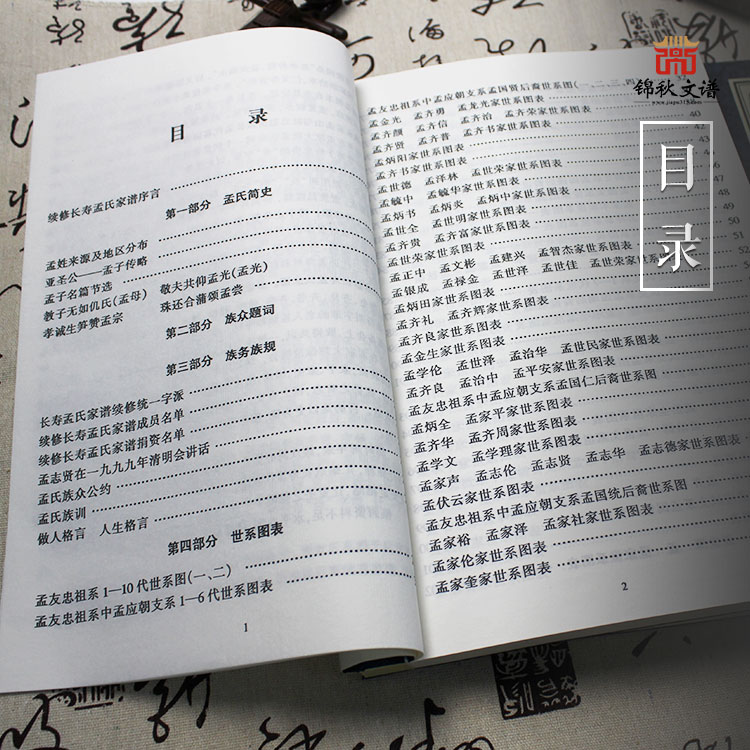 目 录
续修长寿孟氏家谱序言
第一部分 孟氏简史
孟姓来源及地区分布
亚圣公——孟子传略
孟子名篇节选
教子无如仉氏(孟母) 敬夫共仰孟光(孟光)
孝诚生笋赞孟宗 珠还合蒲颂孟尝
第二部分 族众题词
第三部分 族务族规
长寿孟氏家谱续修统一字派
续修长寿孟氏家谱成员名单
续修长寿孟氏家谱捐资名单
孟志贤在一九九九年清明会讲话
孟氏族众公约
孟氏族训
做人格言 人生格言
第四部分 世系图表
孟友忠祖系1—10代世系图(一、二)
孟友忠祖系中孟应朝支系1—6代世系图表
1
孟友忠祖系中孟应朝支系孟国贤后裔世系图(一、二、三、四
孟金光 孟齐勇 孟龙光家世系图表
孟齐颜 孟齐信 孟齐治 孟齐荣家世系图表 40
孟齐贤 孟齐普 孟齐书家世系图表 42
孟炳阳家世系图表
孟齐书家世系图表
孟世德 孟泽林 孟世荣家世系图表
孟毓中 孟毓华家世系图表
孟炳书 孟炳炎 孟炳中家世系图表
孟世全 孟世明家世系图表 48
孟齐贵 孟齐富家世系图表 50
孟世荣家世系图表
孟正中 孟文彬 孟建兴 孟智杰家世系图表
孟银成 孟禄金 孟世泽 孟世佳 孟世荣家世系图表
孟炳田家世系图表
孟齐礼 孟齐辉家世系图表
孟齐良家世系图表
孟金生家世系图表
孟学伦 孟世泽 孟治华 孟世民家世系图表
孟齐良 孟治中 孟平安家世系图表
孟友忠祖系中孟应朝支系孟国仁后裔世系图
孟炳全 孟家平家世系图表
孟齐华 孟齐周家世系图表
孟学文 孟学理家世系图表
孟家声 孟志伦 孟志贤 孟志华 孟志德家世系图表
孟伏云家世系图表
孟友忠祖系中孟应朝支系孟国统后裔世系图
孟家裕 孟家泽 孟家社家世系图表
孟家伦家世系图表
孟家奎家世系图表
2
锦秋文谱
www.jiapu315.com
目录